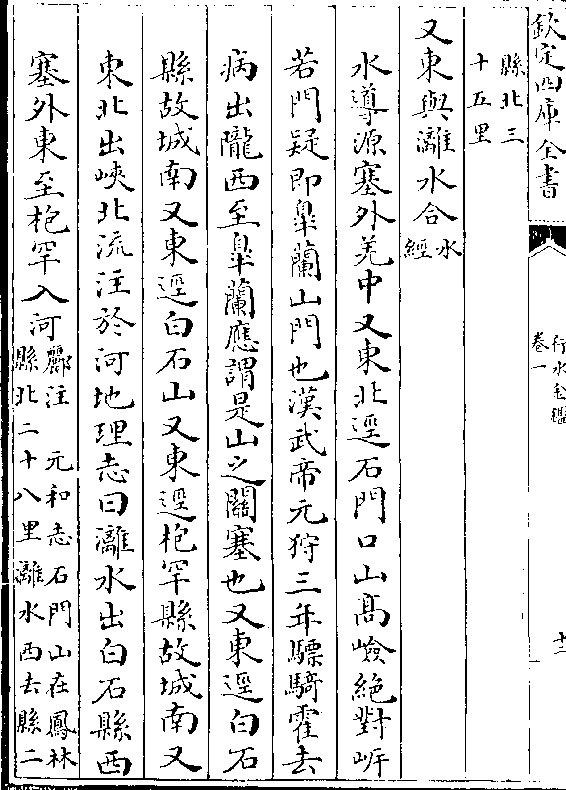 欽定四庫全書
行水金鑑
卷一
十二
縣北三
十五里
又東與灕水合水
經
水導源塞外羌中又東北逕石門口山髙嶮絶對岍
若門疑即臯蘭山門也漢武帝元狩三年驃騎霍去
病出隴西至臯蘭應謂是山之關塞也又東逕白石
縣故城南又東逕白石山又東逕枹罕縣故城南又
東北出峽北流注於河地理志曰灕水出白石縣西
塞外東至枹罕入河酈注 元和志石門山在鳳林
縣北二十八里灕水西去縣二